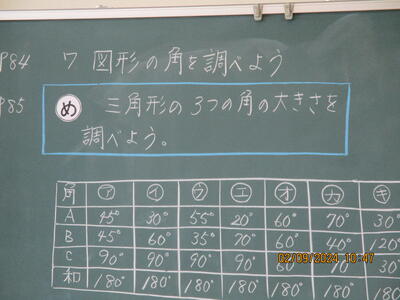 P84 7 図形の角を調べよう
P85 め 三角形の3つの角の大きさを
調べよう。
角 ㋐ ㋑ ㋒ ㋓ ㋔ ㋕ ㋖
A 45° 30° 55° 20° 60° 70° 30°
B 45° 60° 35° 70° 60° 40° 120°
C 90° 90° 90° 90° 60 70 30°
和 180° 180° 180° 180° 180° 180° 180°
02/09/2024 10:47